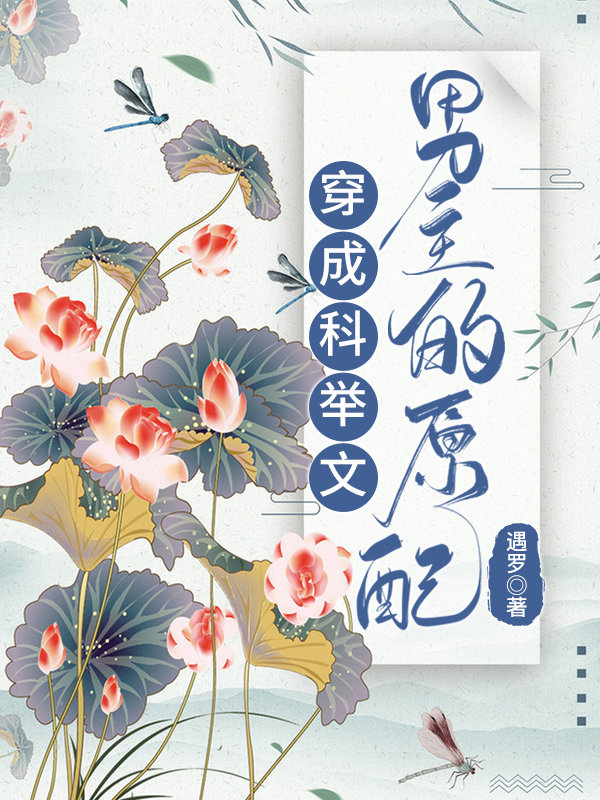 穿成科举文
男主的原配
遇罗◎著